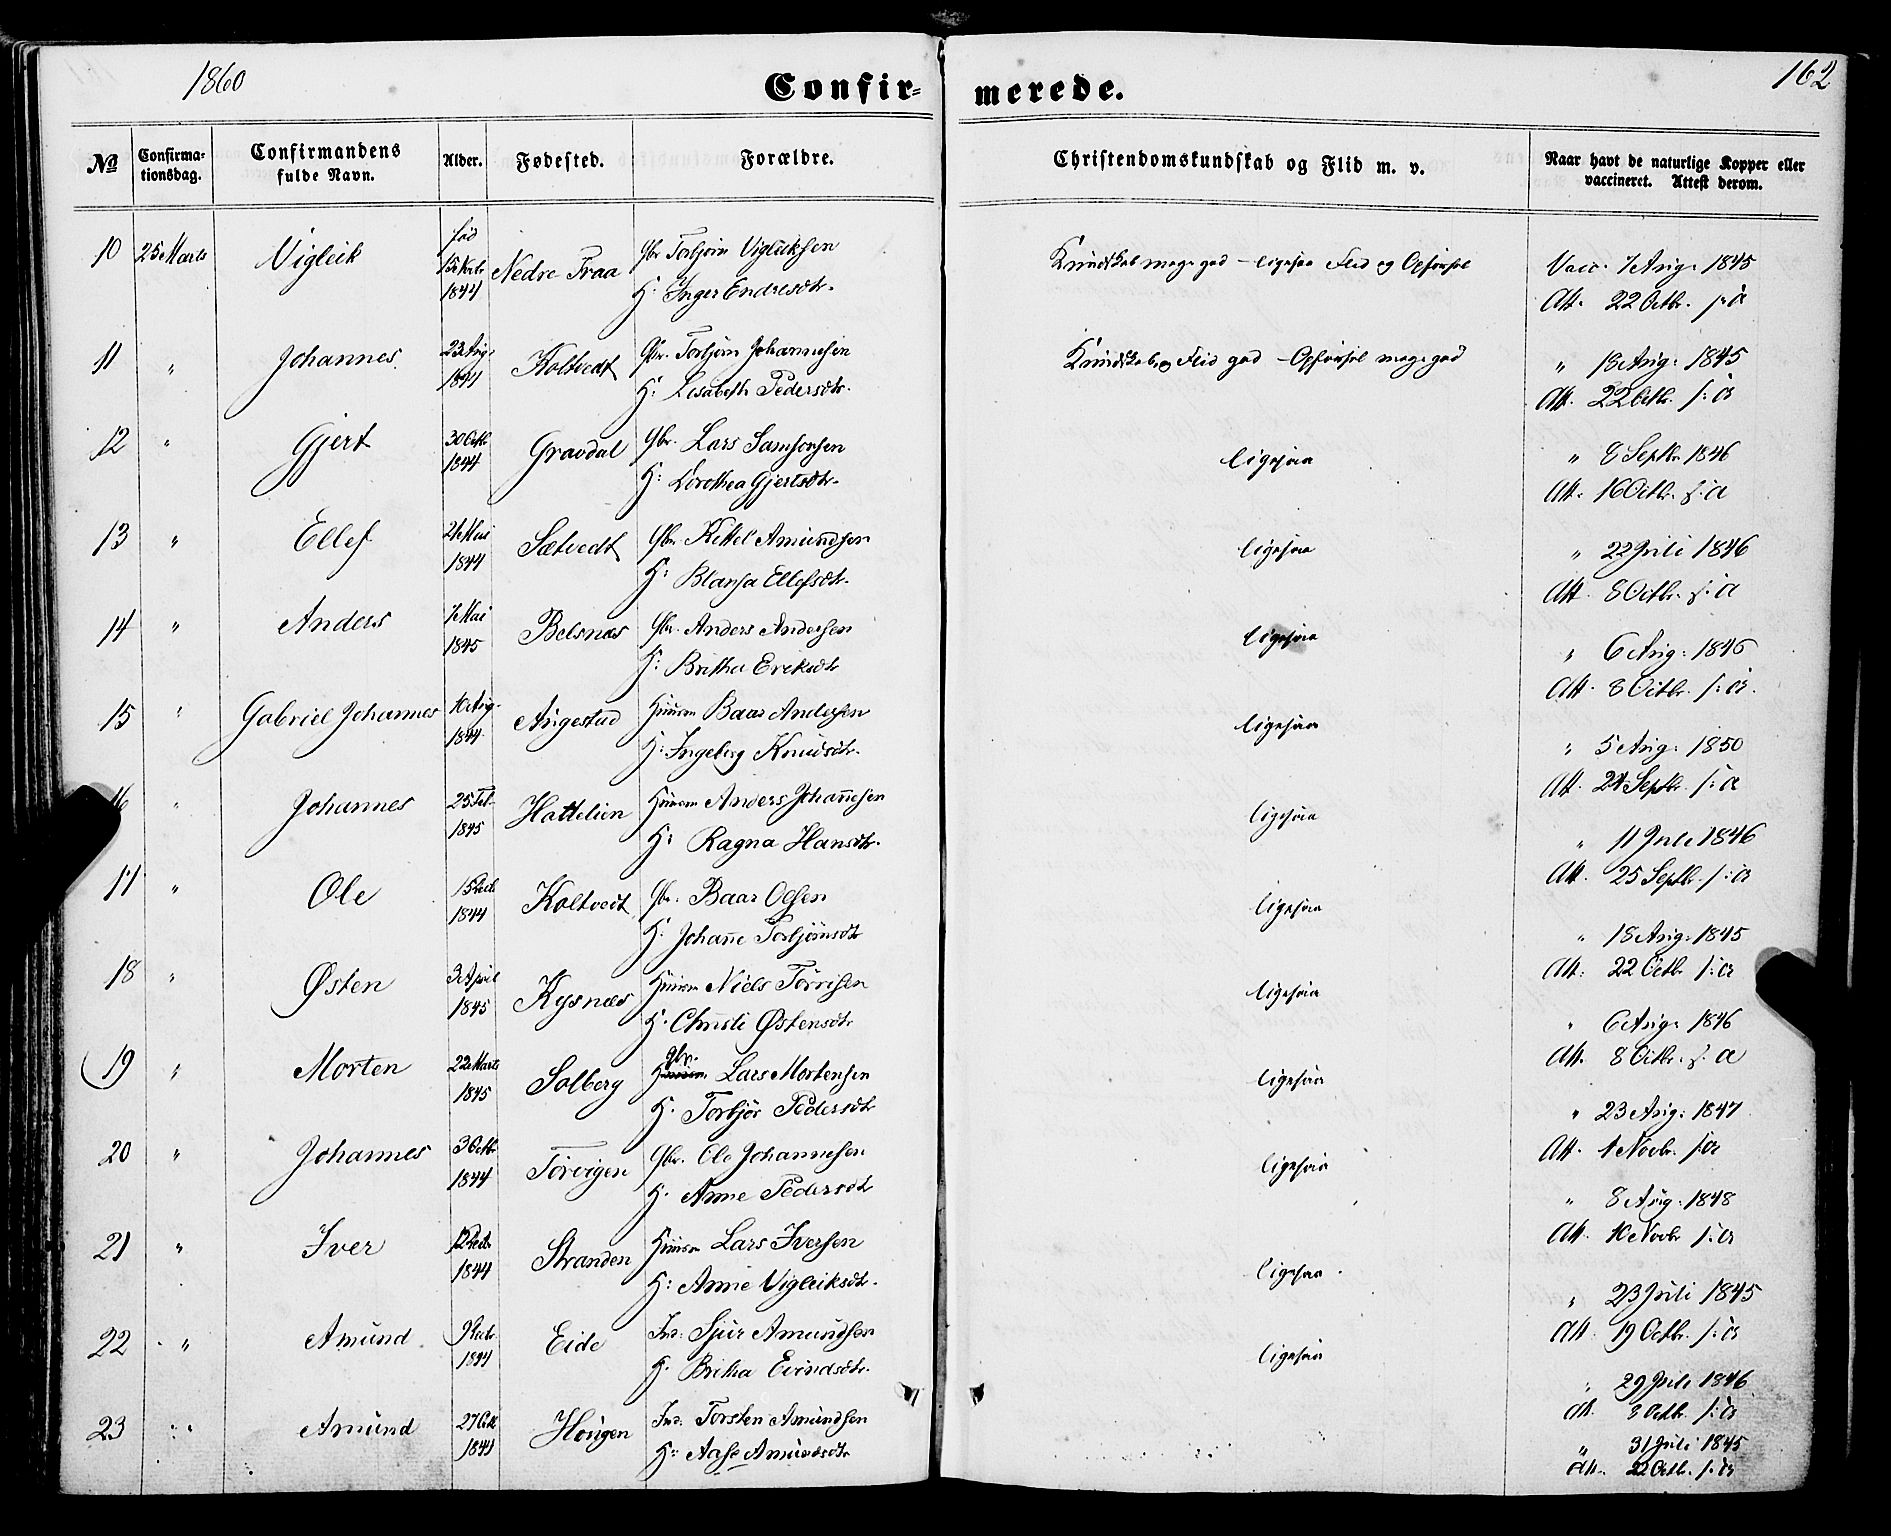 1860
Confirmerede.
162
No
Confirmationsdag.
Confirmandens fulde Navn.
Alder.
Fødested.
Forældre.
Christendomskundskab og Flid m. v.
Naar havt de naturlige Kopper eller vaccineret. Attest derom.
10 25 Marts Vigleik fød 1844 Nedre Traa Gbr Torbjørn Vigleiksen
H: Inger Endresdtr.
Kundskab meget god – ligesaa Flid og Opførsel
Vacc. 7 Aug: 1845
Att. 22 Octbr. s: a
11 " Johannes 23 Aug: 1844 Holtvedt Gbr. Torbjørn Johannesen
H: Lisabeth Pedersdtr.
Kundskab og Flid god – Opførsel meget god
" 18 Aug: 1845
Att. 22 Octbr. s: a
12 " Gjert 30 Octbr 1844 Gravdal Gbr. Lars Samsonsen
H: Dorothea Gjertsdtr.
ligesaa
" 8 Septbr 1846
Att. 16 Octbr. s: a
13 " Ellef 24 Mai 1844 Sætvedt Gbr. Kittel Amundsen
H: Blansa Ellefsdtr.
ligesaa
" 22 Juli 1846
Att. 8 Octbr. s: a
14 " Anders 7 Mai 1845 Belsnæs Gbr. Anders Andersen
H: Britha Eriksdtr
ligesaa
" 6 Aug: 1846
Att. 8 Octbr. s: a.
15 " Gabriel Johannes 10 Aug. 1844 Augestad Huusm Baar Andersen
H: Ingeborg Knudsdtr.
ligesaa
" 5 Aug: 1850
Att. 24 Septbr. s: a
16 " Johannes 25 Feb. 1845 Hattelien Huusm Anders Johannesen
H: Ragna Hansdtr.
ligesaa
" 11 Juli 1846
Att. 25 Septbr. s: a
17 " Ole 1844 Holtvedt Gbr. Baar Olsen
H: Johanne Torbjørnsdtr
ligesaa
" 18 Aug: 1845
Att: 22 Octbr s: a
18 " Østen 3 April 1845 Kysnæs Huusm Niels Torrisen
H. Christi Østensdtr
ligesaa
" 6 Aug: 1846
Att. 8 Octbr. s: a
19 " Morten 22 Marts 1845 Solberg Gbr. Lars Mortensen
H. Torbjør Pedersdtr
ligesaa
" 23 Aug: 1847
Att. 1 Novbr. s: a
20 " Johannes 3 Octbr 1844 Torvigen Gbr. Ole Johannesen
H. Anne Pedersdtr
ligesaa
" 8 Aug: 1848
Att. 10 Novbr s: a
21 " Iver 1844 Stranden Huusm Lars Iversen
H: Anne Vigleiksdtr.
ligesaa.
" 23 Juli 1845
Att. 19 Octbr. s: a
22 " Amund 1844 Eide Ind: Sjur Amundsen
H. Britha Eivindsdtr.
ligesaa
" 29 Juli 1846
Att. 8 Octbr. s: a
23 " Amund 27 Oct 1844 Hougen Ind: Torsten Amundsen
H: Aase Amundsdtr
" 31 Juli 1845
Att. 22 Octbr. s: a